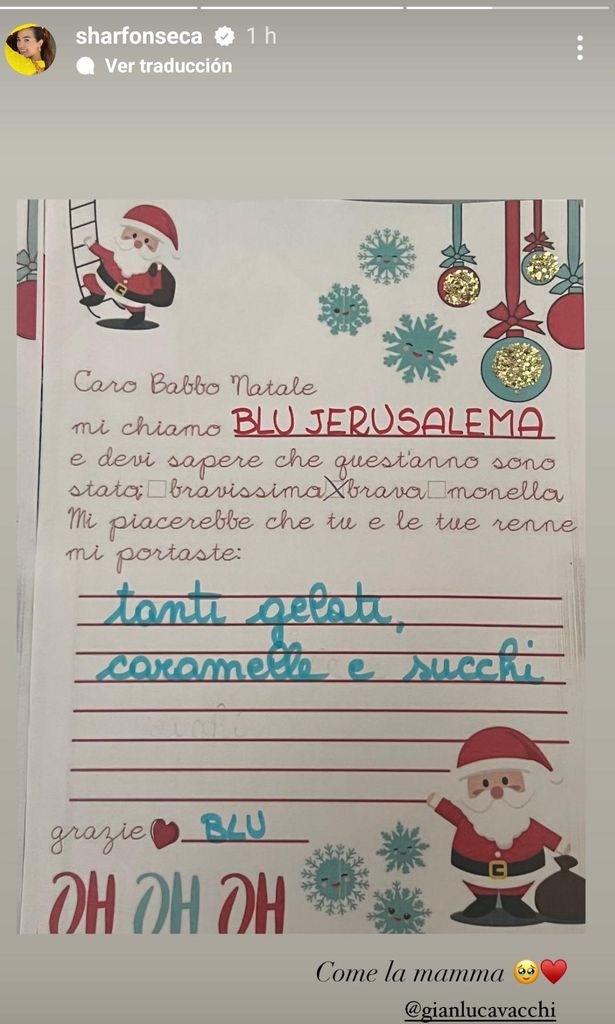 sharfonseca 1 h
Ver traducción
Caro Babbo Natale
mi chiamo BLU JERUSALEMA
e devi sapere che quest'anno sono
stata: bravissima brava monella
Mi piacerebbe che tu e le tue renne
mi portaste:
tanti gelati,
caramelle e succhi
grazie BLU
OH OH OH
Come la mamma 🥹♥️
@gianlucavacchi